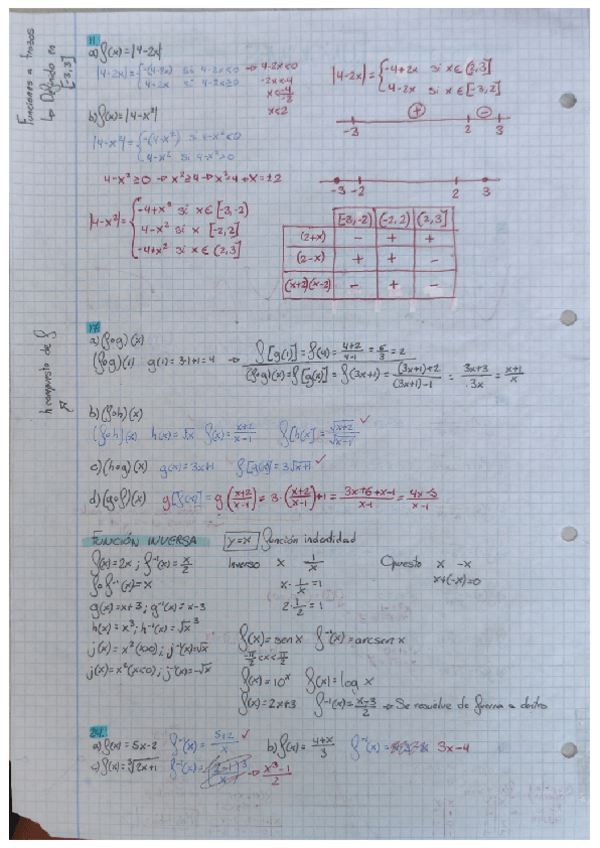 Funciones a trozos
↳ Definido en [-3,3]
11
a) f(x)=|4-2x|
|4-2x|= { -(4-2x) si 4-2x<0 → 4-2x<0
4-2x si 4-2x≥0
-2x<-4
x<-4/-2
x<2
|4-2x|= { -4+2x si x∈(2,3]
4-2x si x∈[-3,2]
+ -
-3 2 3
b) f(x)=|4-x²|
|4-x²|= { -(4-x²) si 4-x²<0
4-x² si 4-x²>0
4-x²≥0 → x²≥4 → x²=4 → x=±2
-3 -2 2 3
|4-x²|= { -4+x² si x∈[-3,-2)
4-x² si x [-2,2]
-4+x² si x∈(2,3]
[-3,-2) (-2,2) (2,3]
(2+x) - + +
(2-x) + + -
(x+2)(x-2) - + -
h compuesto de f
17
a) (f∘g)(x)
(f∘g)(1) g(1)=3·1+1=4 → f[g(1)]=f(4)=4+2/4-1=6/3=2
(f∘g)(x)=f[g(x)]=f(3x+1)=(3x+1)+2/(3x+1)-1=3x+3/3x=x+1/x
b) (f∘h)(x)
(f∘h)(x) h(x)=√x f(x)=x+2/x-1 f[h(x)]=√x+2/√x-1 ✓
c) (h∘g)(x) g(x)=3x+1 f[g(x)]=3√x+1 ✓
d) (g∘f)(x) g[f(x)]=g(x+2/x-1)=3·(x+2/x-1)+1=3x+6+x-1/x-1=4x-5/x-1
FUNCIÓN INVERSA y=x función indentidad
f(x)=2x; f⁻¹(x)=x/2 Inverso x 1/x Opuesto x -x
f∘f⁻¹(x)=x x·1/x=1 x+(-x)=0
g(x)=x+3; g⁻¹(x)=x-3 2·1/2=1
h(x)=x³; h⁻¹(x)=√x³
f(x)=sen x f⁻¹(x)=arcsen x
j(x)=x²(x>0); j⁻¹(x)=√x -π/2<x<π/2
j(x)=x²(x<0); j⁻¹(x)=-√x f(x)=10ˣ f(x)=log x
f(x)=2x+3 f⁻¹(x)=x-3/2 → Se resuelve de fuerna a dentro
24.
a) f(x)=5x-2 f⁻¹(x)=5+2/x ✓ b) f(x)=4+x/3 f⁻¹(x)= 3x-4
c) f(x)=³√2x+1 f⁻¹(x)= → x³-1/2